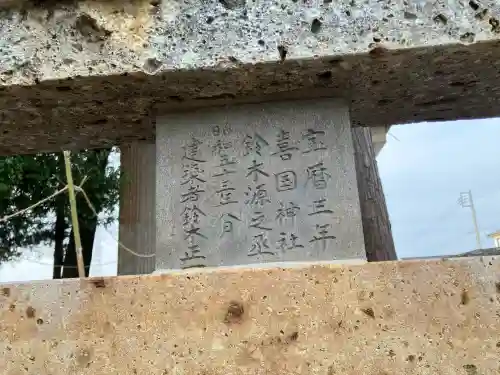 宝暦三年
喜国神社
鈴木源之丞
昭和五十
建築者鈴木正